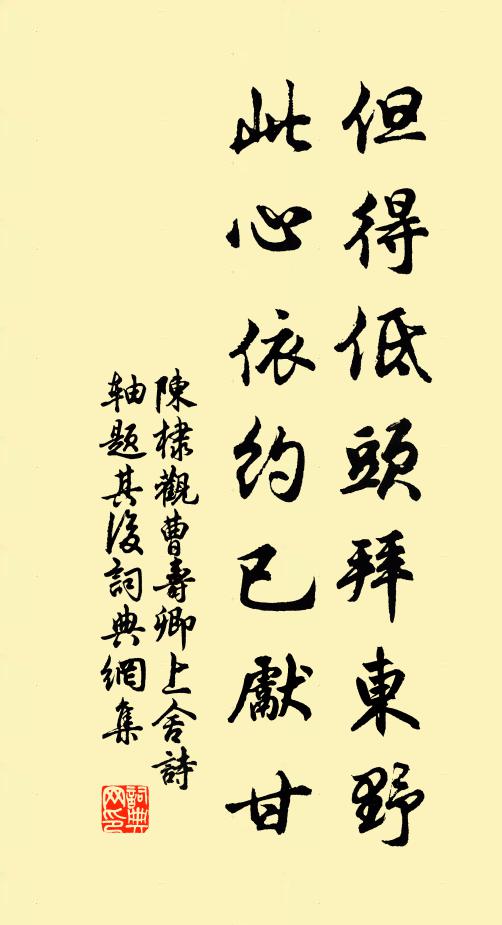 但得低頭拜東野
此心依約已獻甘
陳棣觀曹壽卿上舍詩
軸題其後詞典網集
詞典
网印